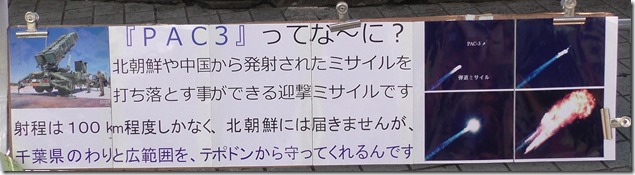 『ＰＡＣ３』ってな～に？
北朝鮮や中国から発射されたミサイルを
打ち落とす事ができる迎撃ミサイルです
射程は100km程度しかなく、北朝鮮には届きませんが、
千葉県のわりと広範囲を、テポドンから守ってくれるんです
PAC-3
弾道ミサイル